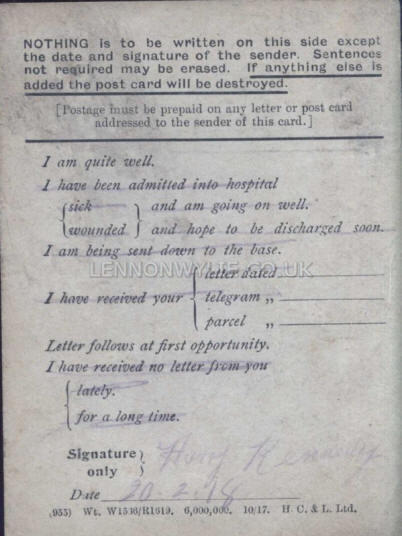 NOTHING is to be written on this side except
the date and signature of the sender. Sentences
not required may be erased. If anything else is
added the post card will be destroyed.
[Postage must be prepaid on any letter or post card
addressed to the sender of this card.]
I am quite well.
I have been admitted into hospital
sick and am going on well.
wounded and hope to be discharged soon.
I am being sent down to the base.
LENNONWYLIE.CO.UK
letter dated
I have received your telegram „
parcel „
Letter follows at first opportunity.
I have received no letter from you
lately.
for a long time.
Signature
only
Harry Kennedy
Date 20-2-18
(955) Wt. W1536/R1619. 6,000,000. 10/17. H. C. & L. Ltd.